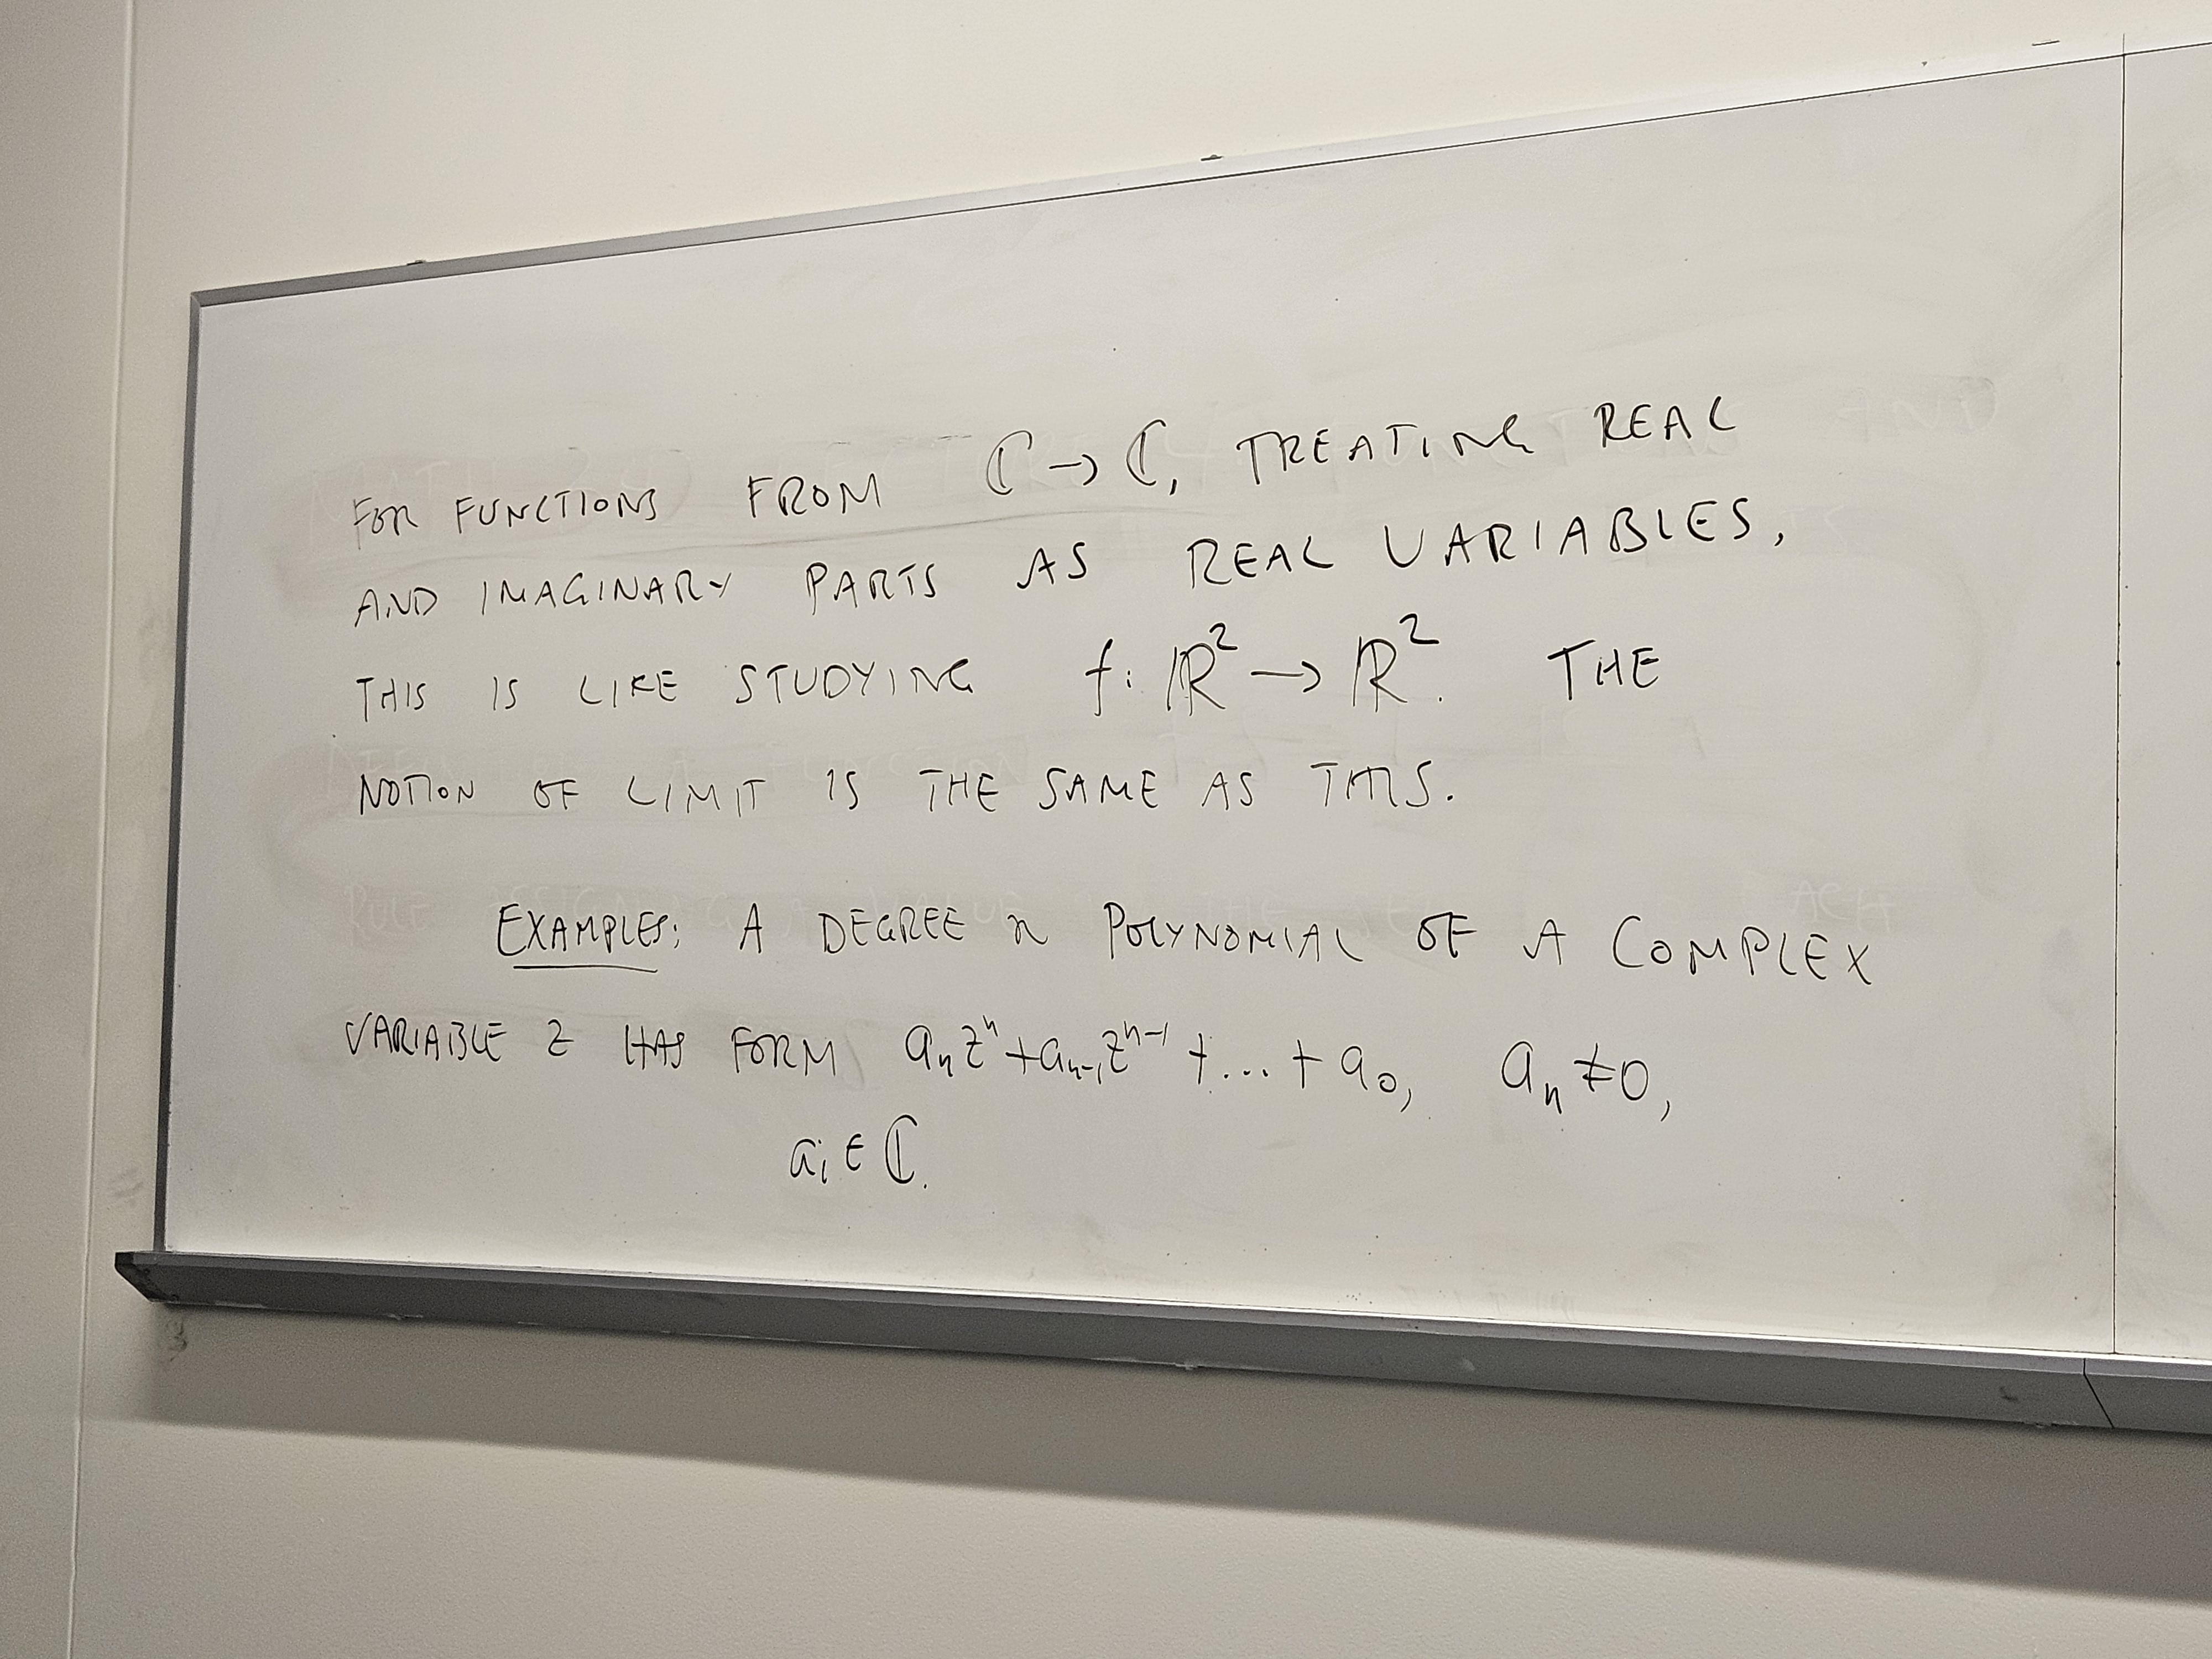 FOR FUNCTIONS FROM ℂ → ℂ, TREATING REAL
AND IMAGINARY PARTS AS REAL VARIABLES,
THIS IS LIKE STUDYING f: ℝ² → ℝ². THE
NOTION OF LIMIT IS THE SAME AS THIS.
EXAMPLES: A DEGREE n POLYNOMIAL OF A COMPLEX
VARIABLE z HAS FORM aₙzⁿ + aₙ₋₁zⁿ⁻¹ + ... + a₀, aₙ ≠ 0,
aᵢ ∈ ℂ.